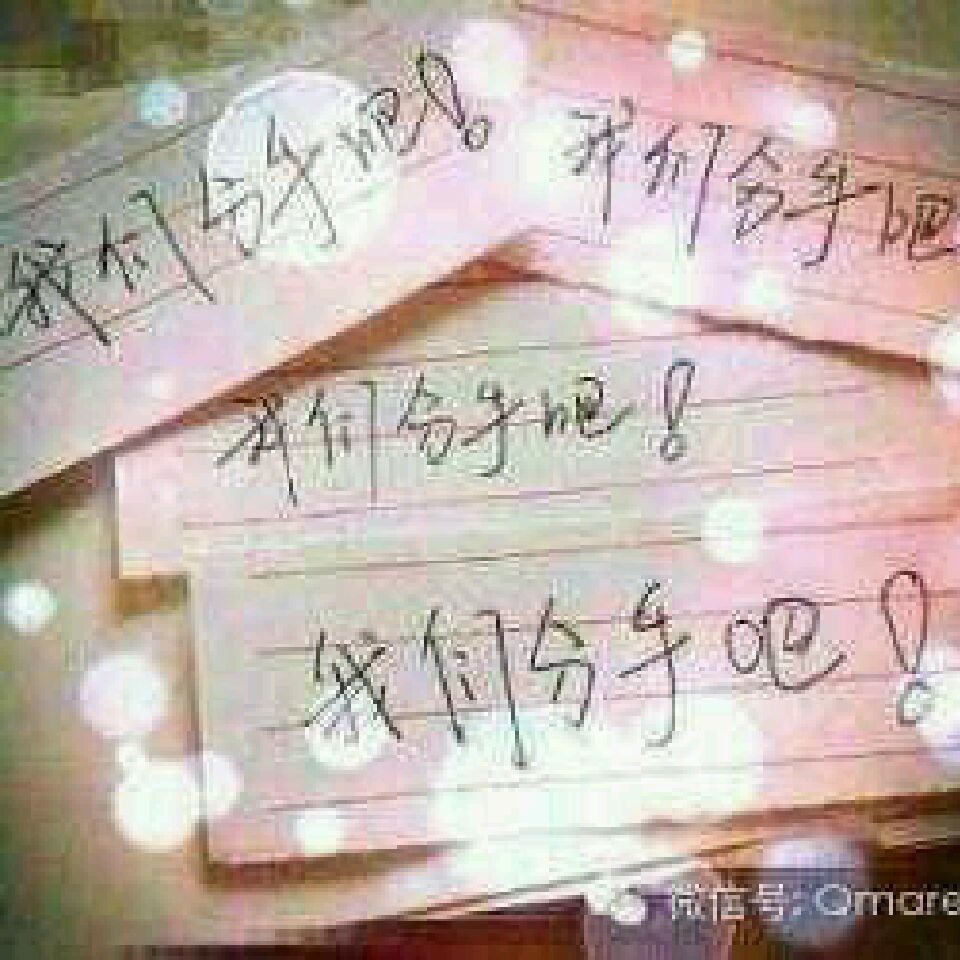 我们分手吧！
我们分手吧
我们分手吧！
我们分手吧！
微信号: Qmara